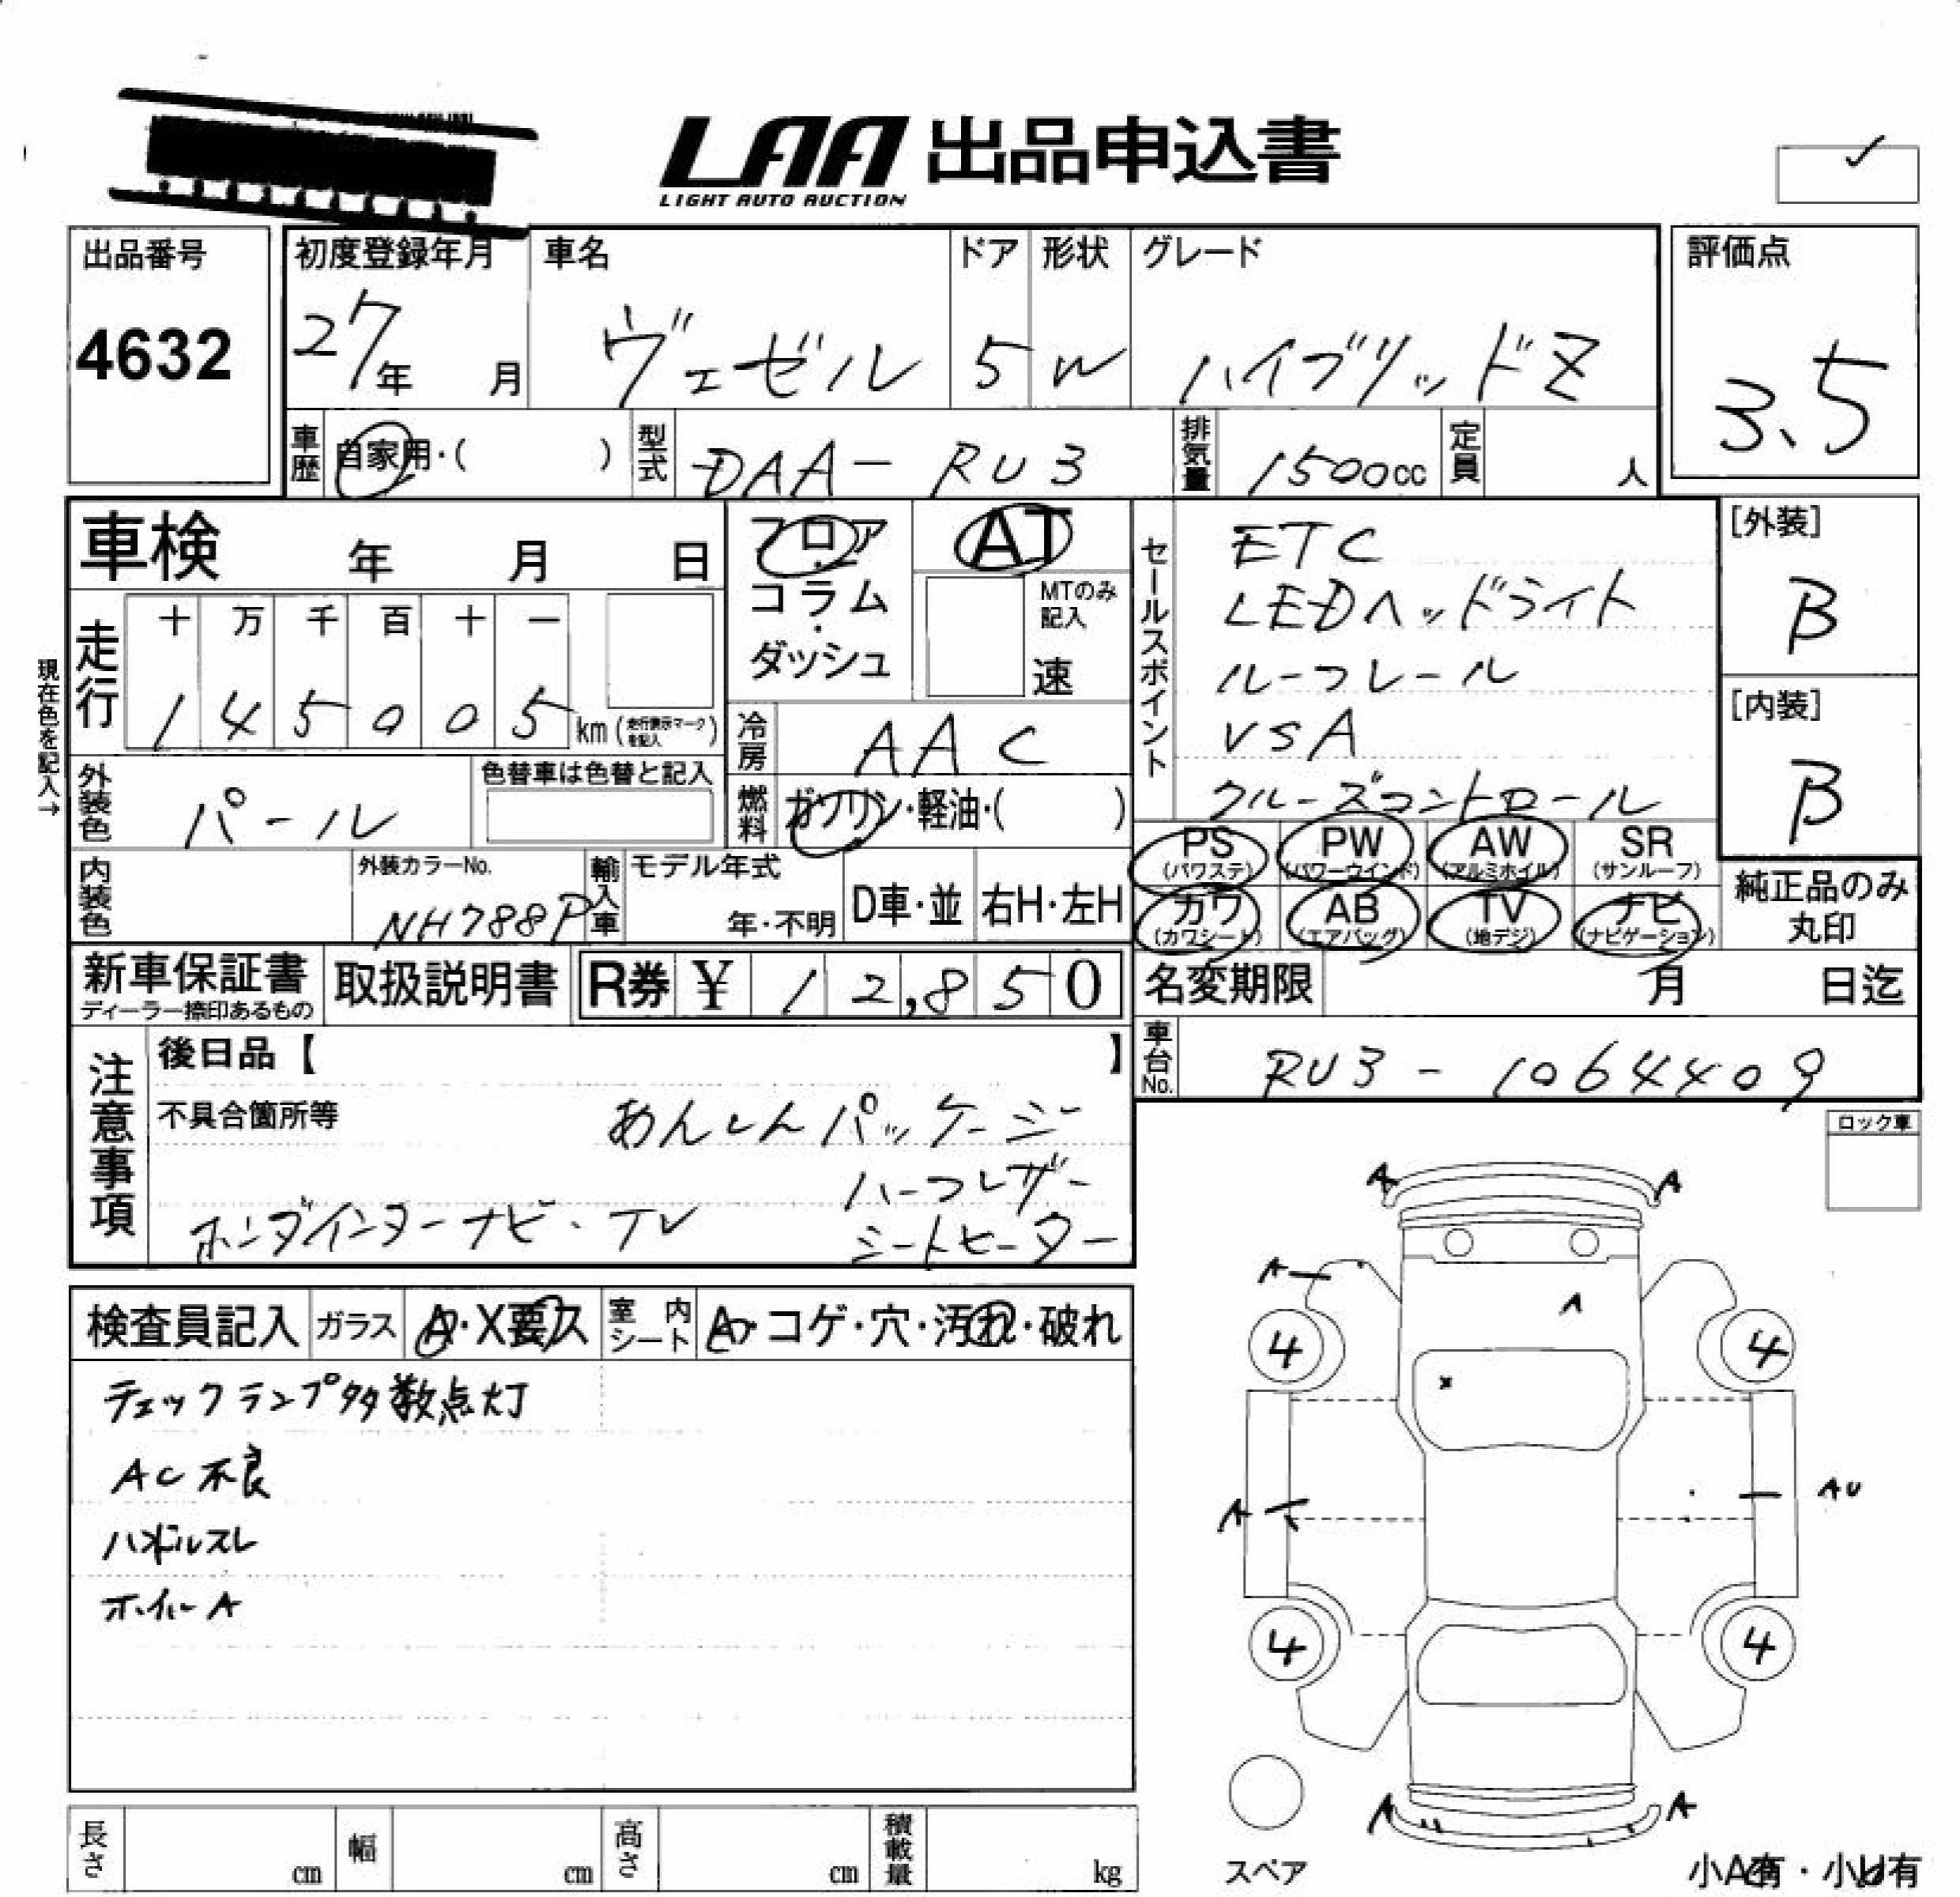 LAA 出品申込書
LIGHT AUTO AUCTION
出品番号
4632
初度登録年月
27年 月
車名
ヴェゼル
ドア
5
形状
W
グレード
ハイブリッドZ
評価点
3.5
車歴 自家用・( )
型式 DAA-RU3
排気量 1500cc
定員 人
車検 年 月 日
フロア
コラム
・
ダッシュ
AT
MTのみ記入
速
セールスポイント
ETC
LEDヘッドライト
ルーフレール
VSA
クルーズコントロール
[外装]
B
[内装]
B
現在色を記入→
走行
十 万 千 百 十 一
1 4 5 0 0 5 km (走行表示マークを記入)
冷房 AAC
外装色 パール
色替車は色替と記入
燃料 ガソリン・軽油・( )
PS (パワステ)
PW (パワーウインド)
AW (アルミホイル)
SR (サンルーフ)
カワ (カワシート)
AB (エアバッグ)
TV (地デジ)
ナビ (ナビゲーション)
純正品のみ丸印
内装色
外装カラーNo.
NH788P
輸入車
モデル年式
年・不明
D車・並
右H・左H
新車保証書
ディーラー捺印あるもの
取扱説明書
R券 ¥ 12,850
名変期限 月 日迄
車台No. RU3-1064409
注意事項
後日品【 】
不具合箇所等
あんしんパッケージ
ハーフレザー
ホンダインターナビ・TV
シートヒーター
ロック車
検査員記入
ガラス A・X要ス
室内シート A・コゲ・穴・汚れ・破れ
チェックランプ多数点灯
AC不良
ハンドルスレ
ホイルA
A A
A
A
4 4
x
A
AU
4 4
A A
スペア
小A有・小U有
長さ cm
幅 cm
高さ cm
積載量 kg